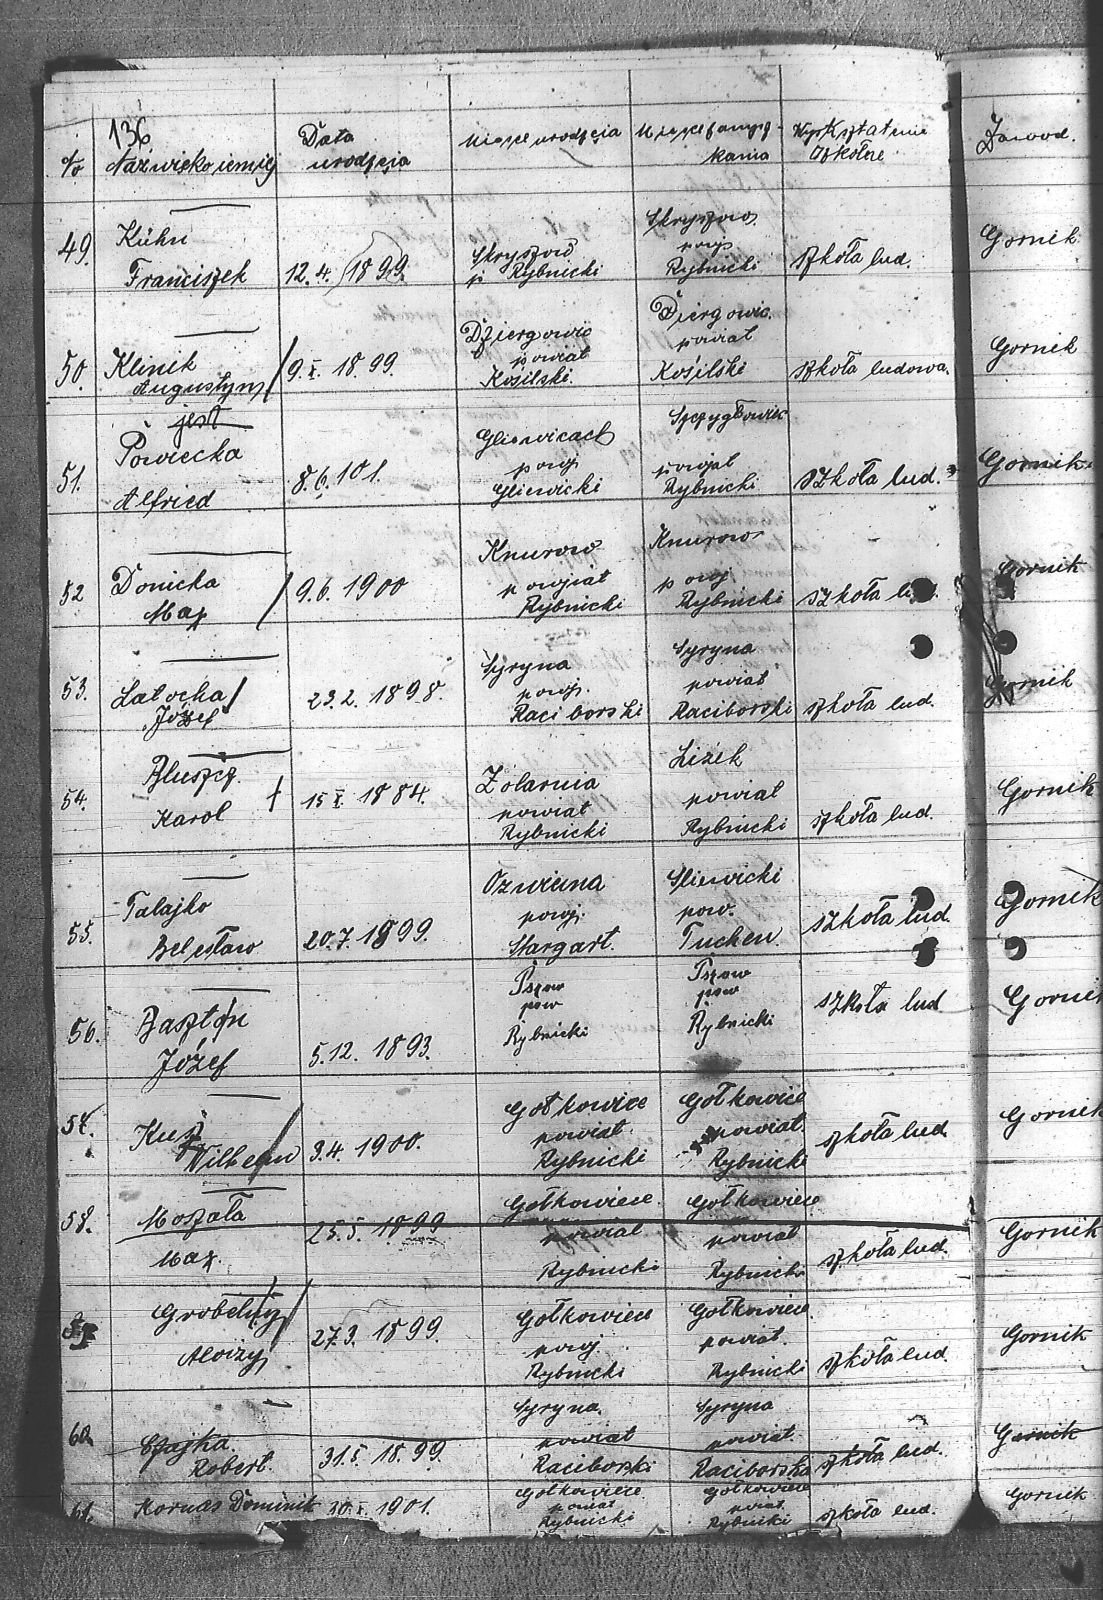 136
Nazwisko i imię
Data
urodzęja
Miejsce urodzęja
kania
Wykształcenie
szkolne
Zawod.
49.
Kühn
Franciszek
12.4. 1899.
Skryszow
p Rybnicki
Skryszow
pow
Rybnicki
szkoła lud.
Gornik
50.
Klinik
Augustyn
9.I. 1899.
Dziergowic
powiat
Kozilski.
Dziergowic.
powiat
Kozilski
szkoła ludowa.
Gornik
jest
51.
Powiecka
Alfried
8.6.101.
Gliewicach
pow
Gliewicki
Szczygłowiec
powjat
Rybnicki
szkoła lud.
Gornik
52
Donicka
Max
9.6.1900
Knurow
powjat
Rybnicki
Knurow
powj
Rybnicki
szkoła lud.
Gornik
53.
Latocha
Józef
23.2. 1898.
Syryna
powj.
Raciborski
Syryna
powiat
Raciborski
szkoła lud.
Gornik
54.
Bluszcz.
Karol
15 I. 1884.
Zolarnia
powiat
Rybnicki
Lizek
powiat
Rybnicki
szkoła lud.
Gornik
55.
Talajko
Bolesław
20.7.1899.
powj.
Stargart.
Sliewicki
pow.
Tuchen.
szkoła lud.
Gornik
56.
Basztón
Józef
5.12. 1893.
Pszow
pow
Rybnicki
Pszow
pow
Rybnicki
szkoła lud
Gornik
57.
Kuś
Wilhelm
3.4. 1900.
Gołkowice
powiat.
Rybnicki
Gołkowice
powiat.
Rybnicki
szkoła lud
Gornik
58.
Moszała
Max.
25.5. 1899
Gołkowiece
powiat
Rybnicki
Gołkowiece
powiat
Rybnicki
szkoła lud.
Gornik
Grobelny
Aloizy
27.3. 1899.
Gołkowiece
powj
Rybnicki
Gołkowiece
powiat.
Rybnicki
szkoła lud.
Gornik
60.
Czajka.
Robert.
31.5. 1899.
Syryna.
powiat
Raciborski
Syryna
powiat.
Raciborska
szkoła lud.
Gornik
61.
Kornas Dominik
10.I. 1901.
Gołkowiece
powiat
Rybnicki
Gołkowiece
powiat.
Rybnicki
szkoła lud.
Gornik